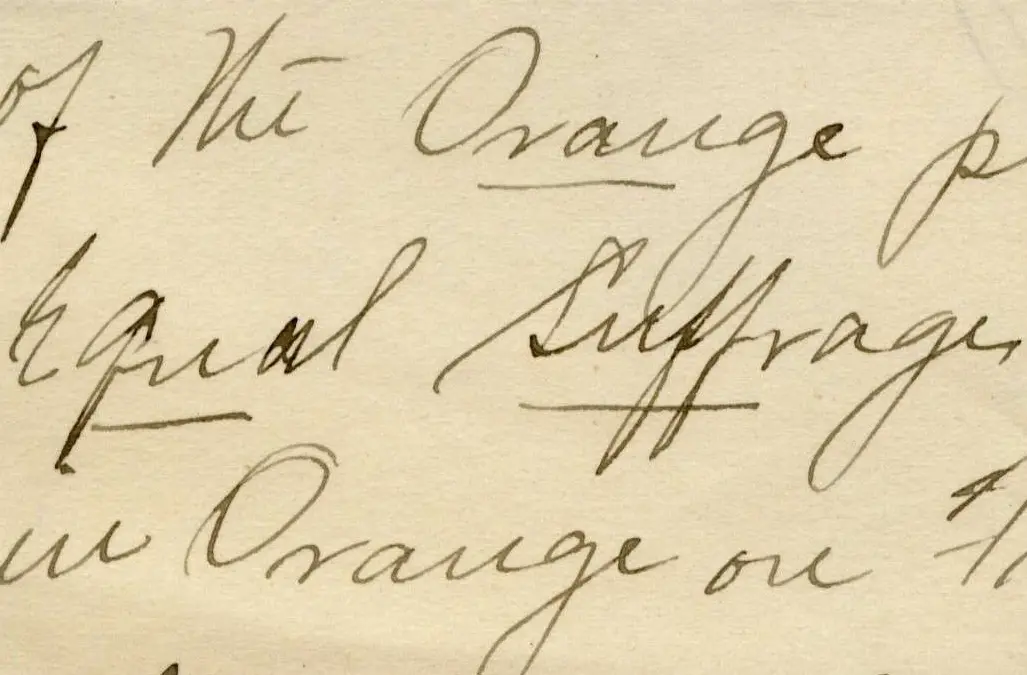 of the Orange
Equal Suffrage
in Orange on